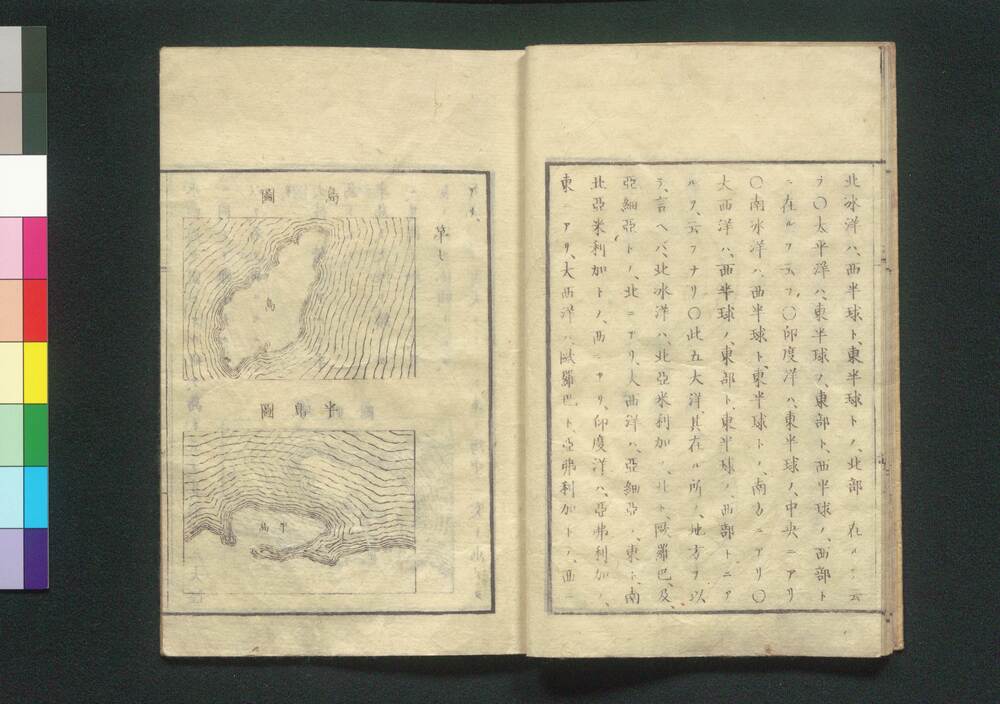 北冰洋ハ、西半球ト、東半球トノ、北部 在ル 云
フ〇太平洋ハ、東半球ノ、東部ト、西半球ノ、西部ト
ニ在ルヲ云フ〇印度洋ハ、東半球ノ、中央ニアリ
〇南冰洋ハ、西半球ト、東半球トノ、南方ニアリ〇
大西洋ハ、西半球ノ、東部ト、東半球ノ、西部トニア
ルヲ、云フナリ〇此五大洋、其在ル所ノ、地方ヲ以
テ、言ヘバ、北冰洋ハ、北亞米利加ノ、北ト、歐羅巴、及
亞細亞トノ、北ニアリ、太西洋ハ、亞細亞ノ、東ト、南
北亞米利加トノ、西ニアリ、印度洋ハ、亞弗利加ノ、
東ニアリ、大西洋ハ、歐羅巴ト、亞弗利加トノ、西
島圖
島
半島圖
半島